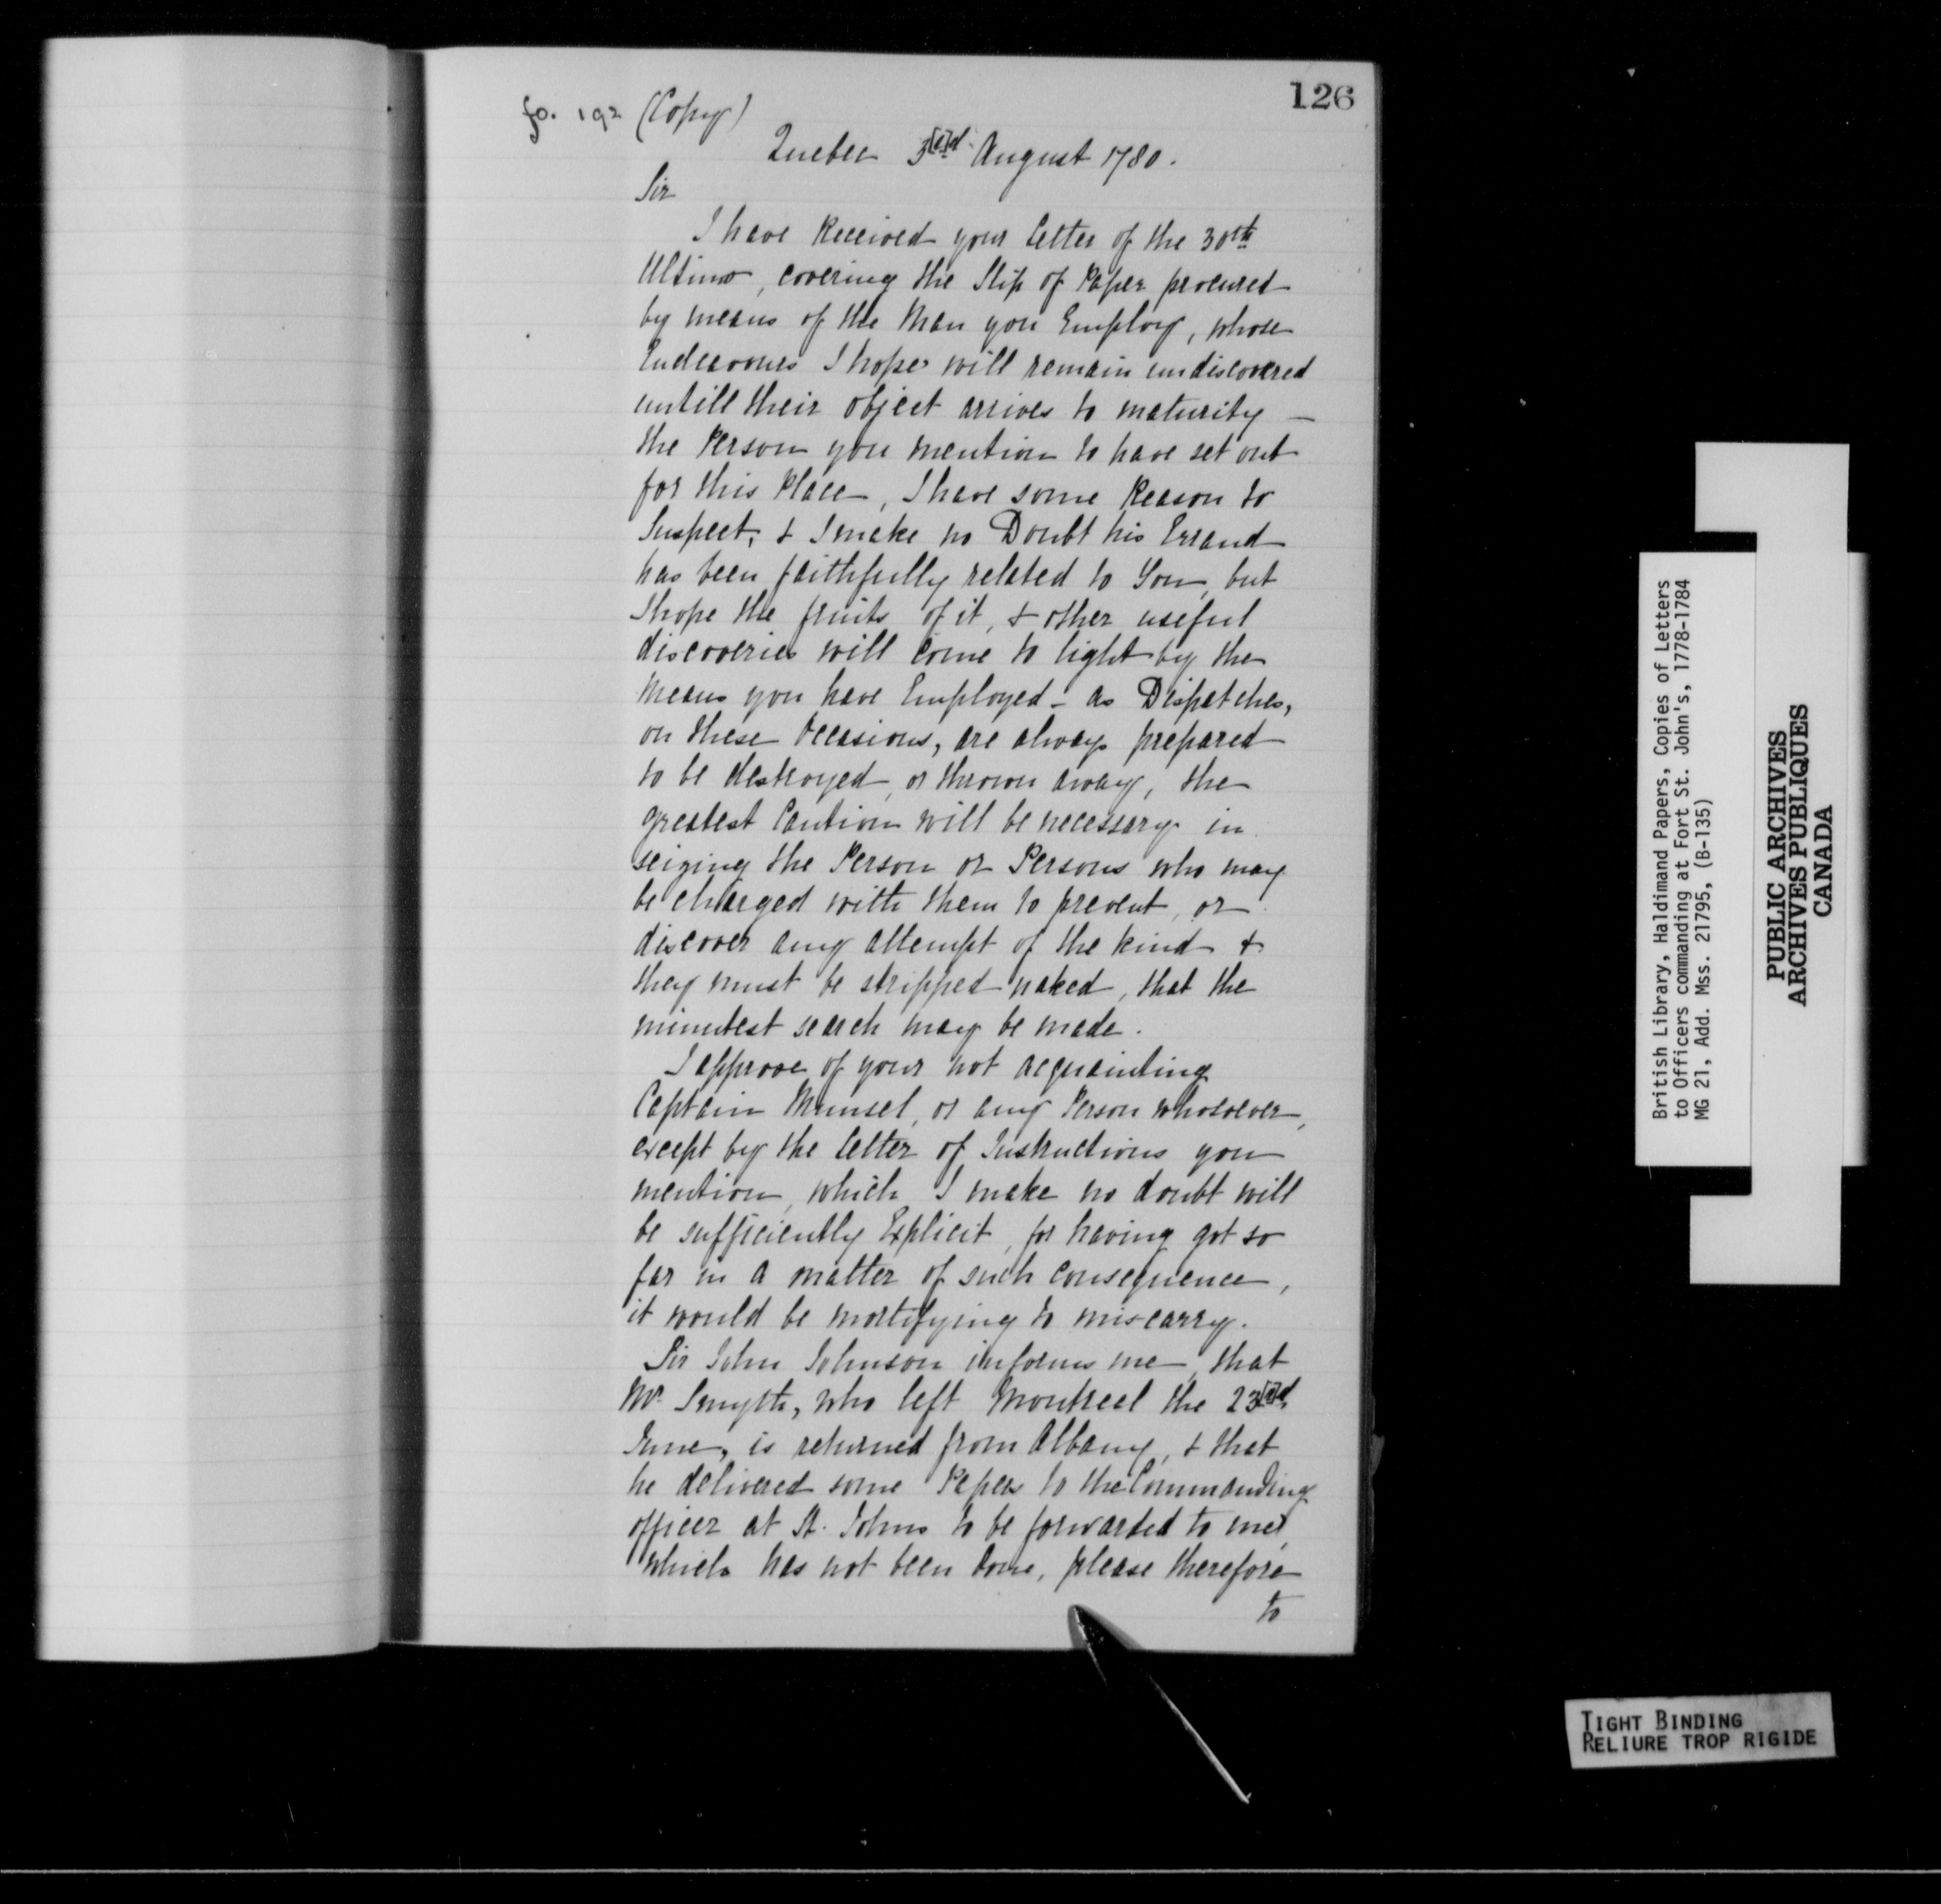 126
fo. 192 (Copy)
Quebec 3[r]d August 1780.
Sir
I have Received your letter of the 30th
Ultimo, covering the Slip of Paper procured
by means of the Man you Employ, whose
Endeavours I hope will remain undiscovered
untill their object arrives to maturity –
the Person you mention to have set out
for this Place, I have some Reason to
Suspect, & I make no Doubt his Errand
has been faithfully related to You, but
I hope the fruits of it, & other useful
discoveries will come to light by the
means you have Employed – as Dispatches,
on these Occasions, are always prepared
to be destroyed, or thrown away, the
greatest Caution will be necessary in
seizing the Person or Persons who may
be charged with them to prevent, or
discover any attempt of the kind &
they must be stripped naked, that the
minutest search may be made.
I approve of your not acquainting
Captain Munsel, or any Person whosoever,
except by the letter of Instructions you
mention, which I make no doubt will
be sufficiently Explicit, for having got so
far in a matter of such consequence,
it would be mortifying to miscarry.
Sir John Johnson informs me, that
Mr. Smyth, who left Montreal the 23[r]d
June, is returned from Albany, & that
he delivered some Papers to the Commanding
officer at St. Johns to be forwarded to me,
which has not been done, please therefore
to
British Library, Haldimand Papers, Copies of Letters
to Officers commanding at Fort St. John's, 1778-1784
MG 21, Add. Mss. 21795, (B-135)
PUBLIC ARCHIVES
ARCHIVES PUBLIQUES
CANADA
TIGHT BINDING
RELIURE TROP RIGIDE